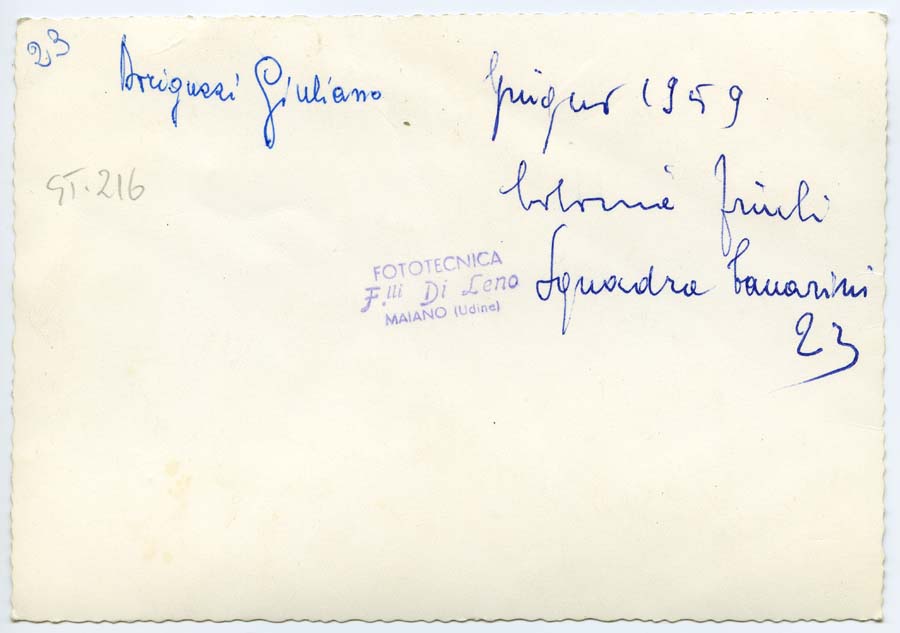 23
Arriguzzi Giuliano
Giugno 1959
GT.216
friuli
FOTOTECNICA
F.lli Di Leno
MAIANO (Udine)
Squadra Canarini
23